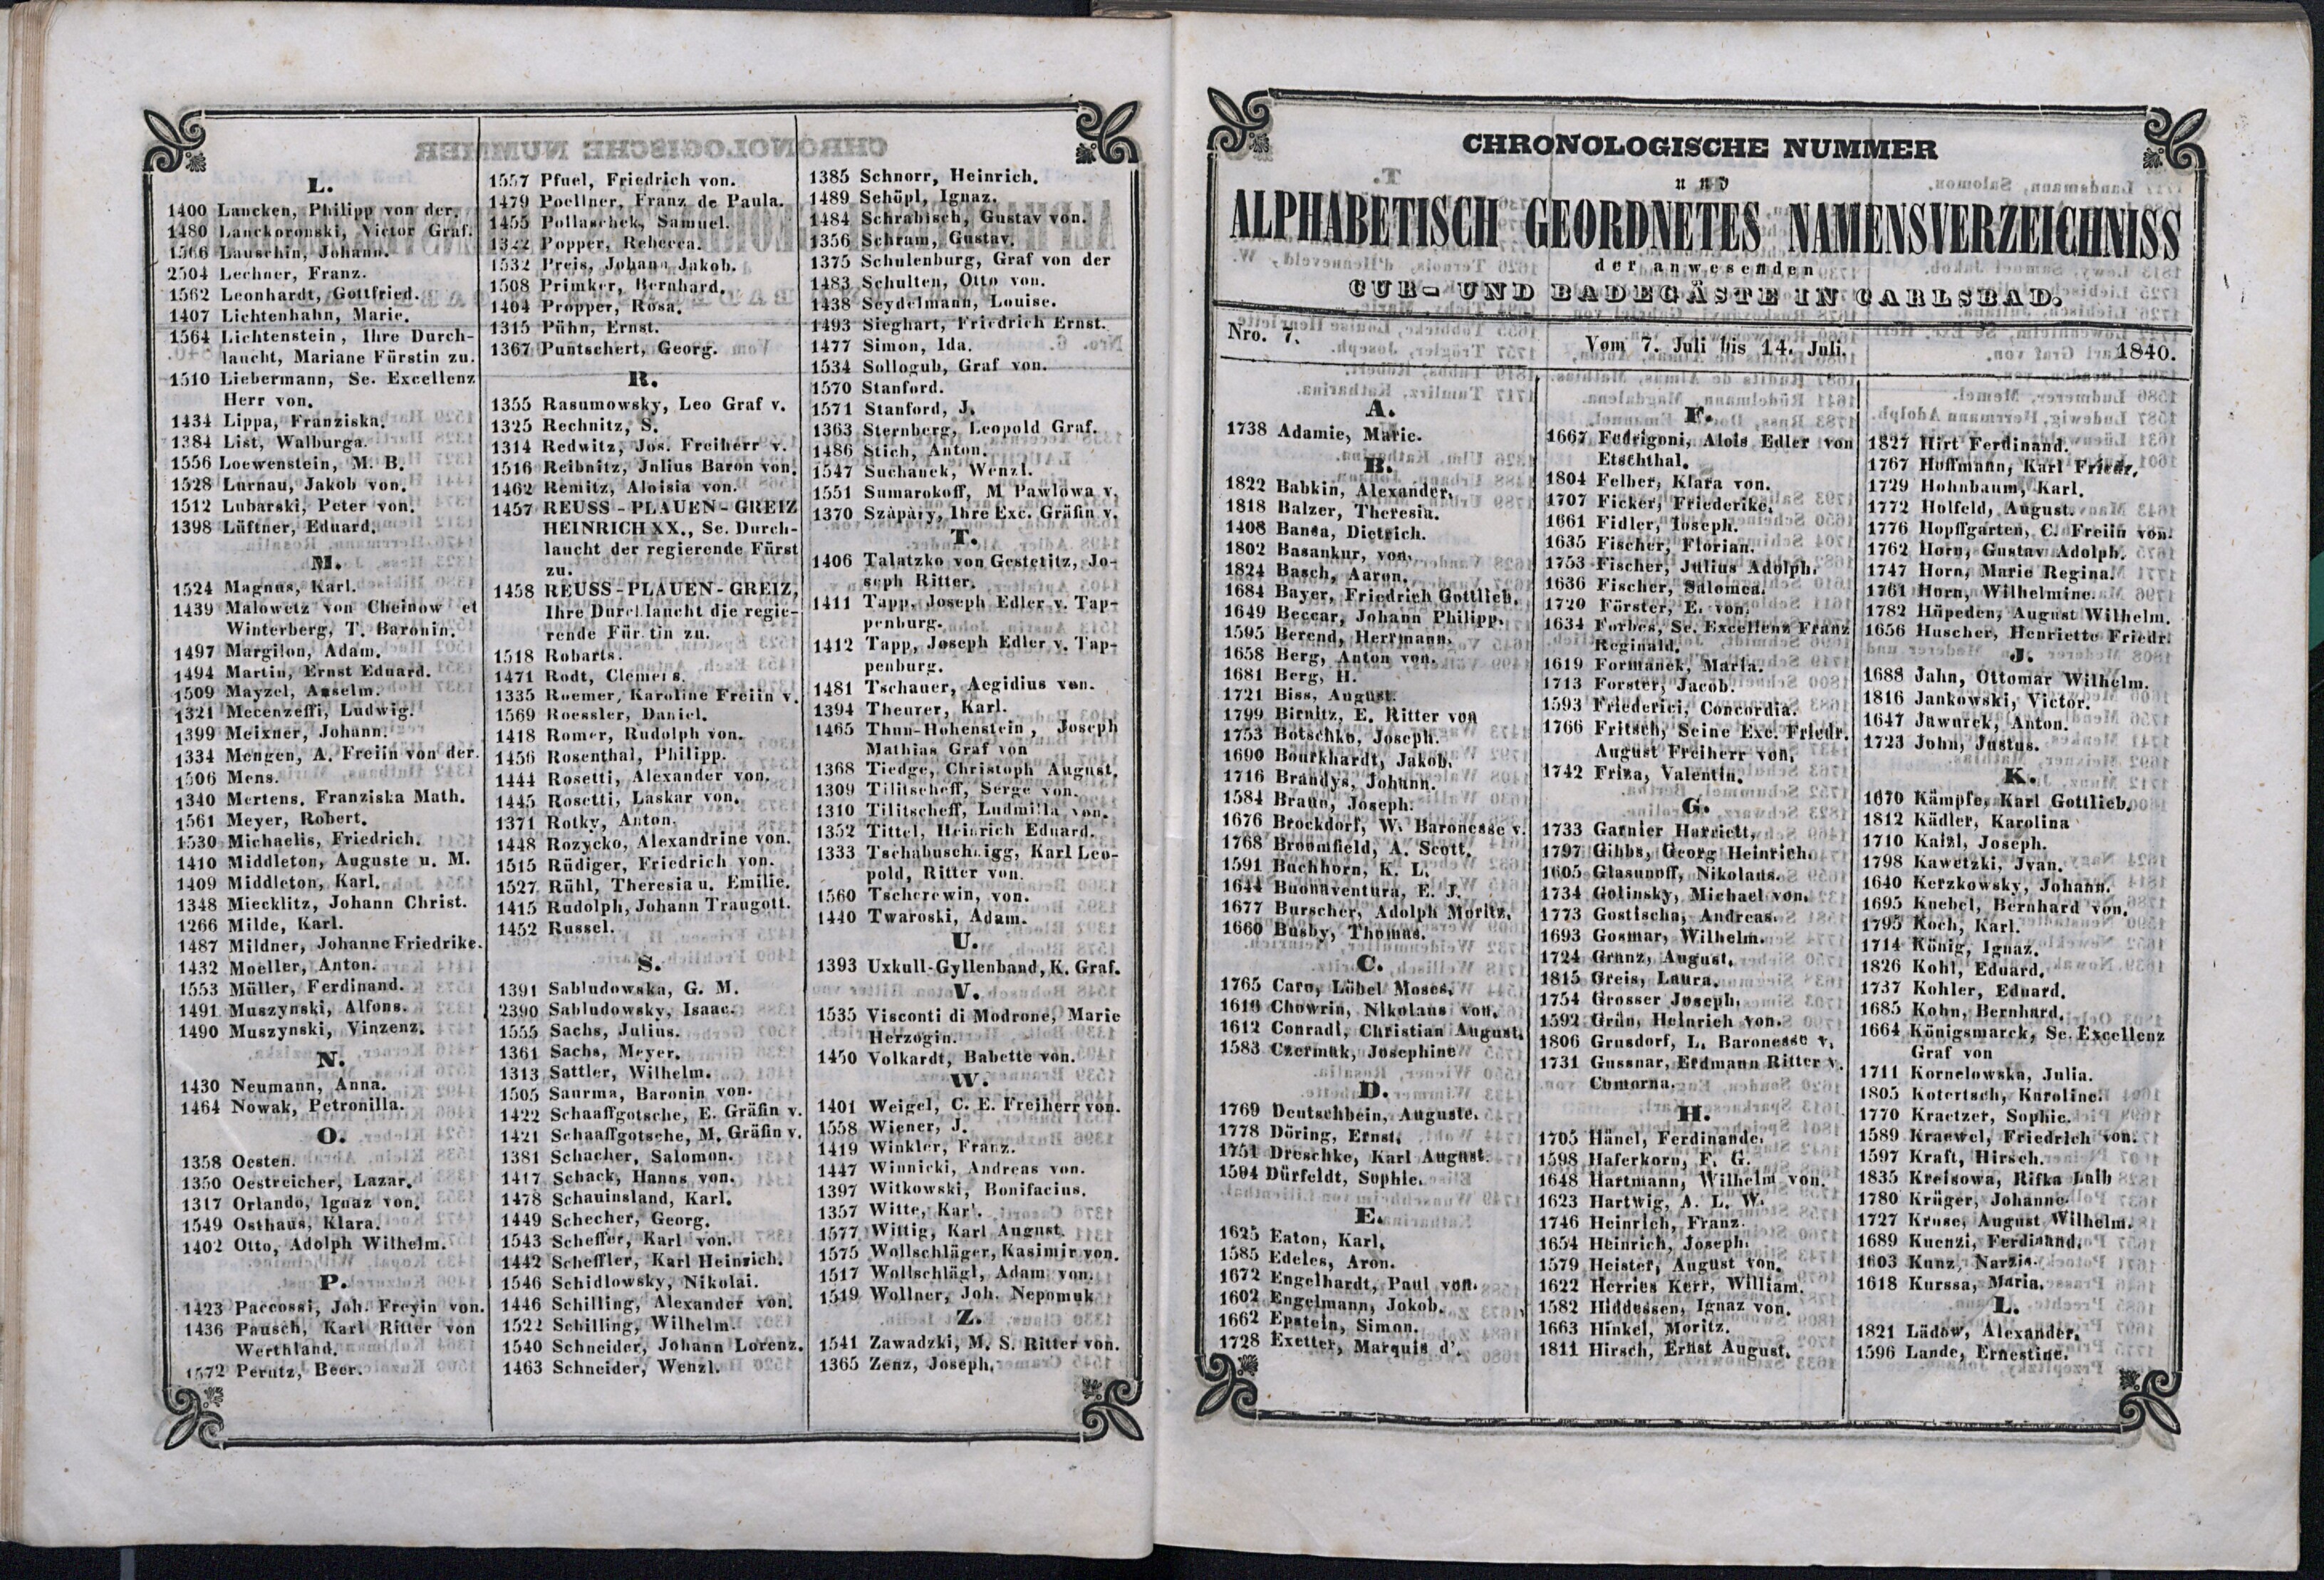 L.
1400 Lancken, Philipp von der.
1480 Lanckoronski, Victor Graf.
1566 Lauschin, Johann.
2504 Lechner, Franz.
1562 Leonhardt, Gottfried.
1407 Lichtenhahn, Marie.
1564 Lichtenstein, Ihre Durch-
laucht, Mariane Fürstin zu.
1510 Liebermann, Se. Excellenz
Herr von.
1434 Lippa, Franziska.
1384 List, Walburga.
1556 Loewenstein, M. B.
1528 Lurnau, Jakob von.
1512 Lubarski, Peter von.
1398 Lüftner, Eduard.
M.
1524 Magnus, Karl.
1439 Malowetz von Cheinow et
Winterberg, T. Baronin.
1497 Margilon, Adam.
1494 Martin, Ernst Eduard.
1509 Mayzel, Anselm.
1321 Mecenzeffi, Ludwig.
1399 Meixner, Johann.
1334 Mengen, A. Freiin von der.
1506 Mens.
1340 Mertens, Franziska Math.
1561 Meyer, Robert.
1530 Michaelis, Friedrich.
1410 Middleton, Auguste u. M.
1409 Middleton, Karl.
1348 Miecklitz, Johann Christ.
1266 Milde, Karl.
1487 Mildner, Johanne Friedrike.
1432 Moeller, Anton.
1553 Müller, Ferdinand.
1491 Muszynski, Alfons.
1490 Muszynski, Vinzenz.
N.
1430 Neumann, Anna.
1464 Nowak, Petronilla.
O.
1358 Oesten.
1350 Oestreicher, Lazar.
1317 Orlando, Ignaz von.
1549 Osthaus, Klara.
1402 Otto, Adolph Wilhelm.
P.
1423 Paccossi, Joh. Freyin von.
1436 Pausch, Karl Ritter von
Werthland.
1572 Perutz, Beer.
1557 Pfuel, Friedrich von.
1479 Poellner, Franz de Paula.
1455 Pollaschek, Samuel.
1322 Popper, Rebecca.
1532 Preis, Johann Jakob.
1508 Primker, Bernhard.
1404 Propper, Rosa.
1315 Pühn, Ernst.
1367 Puntschert, Georg.
R.
1355 Rasumowsky, Leo Graf v.
1325 Rechnitz, S.
1314 Redwitz, Jos. Freiherr v.
1516 Reibnitz, Julius Baron von.
1462 Remitz, Aloisia von.
1457 REUSS-PLAUEN-GREIZ
HEINRICH XX., Se. Durch-
laucht der regierende Fürst
zu.
1458 REUSS-PLAUEN-GREIZ,
Ihre Durchlaucht die regie-
rende Fürstin zu.
1518 Robarts.
1471 Rodt, Clemens.
1335 Roemer, Karoline Freiin v.
1569 Roessler, Daniel.
1418 Romer, Rudolph von.
1456 Rosenthal, Philipp.
1444 Rosetti, Alexander von.
1445 Rosetti, Laskar von.
1371 Rotky, Anton.
1448 Rozycko, Alexandrine von.
1515 Rüdiger, Friedrich von.
1527 Rühl, Theresia u. Emilie.
1415 Rudolph, Johann Traugott.
1452 Russel.
S.
1391 Sabludowska, G. M.
2390 Sabludowsky, Isaac.
1555 Sachs, Julius.
1361 Sachs, Meyer.
1313 Sattler, Wilhelm.
1505 Saurma, Baronin von.
1422 Schaaffgotsche, E. Gräfin v.
1421 Schaaffgotsche, M. Gräfin v.
1381 Schacher, Salomon.
1417 Schack, Hanns von.
1478 Schauinsland, Karl.
1449 Schecher, Georg.
1543 Scheffer, Karl von.
1442 Scheffler, Karl Heinrich.
1546 Schidlowsky, Nikolai.
1446 Schilling, Alexander von.
1522 Schilling, Wilhelm.
1540 Schneider, Johann Lorenz.
1463 Schneider, Wenzl.
1385 Schnorr, Heinrich.
1489 Schöpl, Ignaz.
1484 Schrabisch, Gustav von.
1356 Schram, Gustav.
1375 Schulenburg, Graf von der
1483 Schulten, Otto von.
1438 Seydelmann, Louise.
1493 Sieghart, Friedrich Ernst.
1477 Simon, Ida.
1534 Sollogub, Graf von.
1570 Stanford.
1571 Stanford, J.
1363 Sternberg, Leopold Graf.
1486 Stich, Anton.
1547 Suchanek, Wenzl.
1551 Sumarokoff, M Pawlowa v.
1370 Szàpàry, Ihre Exc. Gräfin v.
T.
1406 Talatzko von Gestetitz, Jo-
seph Ritter.
1411 Tapp, Joseph Edler v. Tap-
penburg.
1412 Tapp, Joseph Edler v. Tap-
penburg.
1481 Tschauer, Aegidius von.
1394 Theurer, Karl.
1465 Thun-Hohenstein, Joseph
Mathias Graf von
1368 Tiedge, Christoph August.
1309 Tilitscheff, Serge von.
1310 Tilitscheff, Ludmilla von.
1352 Tittel, Heinrich Eduard.
1333 Tschabuschnigg, Karl Leo-
pold, Ritter von.
1560 Tscherewin, von.
1440 Twaroski, Adam.
U.
1393 Uxkull-Gyllenband, K. Graf.
V.
1535 Visconti di Modrone, Marie
Herzogin.
1450 Volkardt, Babette von.
W.
1401 Weigel, C. E. Freiherr von.
1558 Wiener, J.
1419 Winkler, Franz.
1447 Winnicki, Andreas von.
1397 Witkowski, Bonifacius.
1357 Witte, Karl.
1577 Wittig, Karl August.
1575 Wollschläger, Kasimir von.
1517 Wollschlägl, Adam von.
1519 Wollner, Joh. Nepomuk
Z.
1541 Zawadzki, M. S. Ritter von.
1365 Zenz, Joseph.
CHRONOLOGISCHE NUMMER
und
ALPHABETISCH GEORDNETES NAMENSVERZEICHNISS
der anwesenden
CUR- UND BADEGÄSTE IN CARLSBAD.
Nro. 7. Vom 7. Juli bis 14. Juli. 1840.
A.
1738 Adamie, Marie.
B.
1822 Babkin, Alexander.
1818 Balzer, Theresia.
1408 Bansa, Dietrich.
1802 Basankur, von.
1824 Basch, Aaron.
1684 Bayer, Friedrich Gottlieb.
1649 Beccar, Johann Philipp.
1595 Berend, Herrmann.
1658 Berg, Anton von.
1681 Berg, H.
1721 Biss, August.
1799 Birnitz, E. Ritter von
1753 Botschko, Joseph.
1690 Bourkhardt, Jakob.
1716 Brandys, Johann.
1584 Braun, Joseph.
1676 Brockdorf, W. Baronesse v.
1768 Broomfield, A. Scott.
1591 Buchhorn, K. L.
1644 Buonaventura, E. J.
1677 Burscher, Adolph Moritz.
1660 Busby, Thomas.
C.
1765 Caro, Löbel Moses.
1616 Chowrin, Nikolaus von.
1612 Conradi, Christian August.
1583 Czermak, Josephine
D.
1769 Deutschbein, Auguste.
1778 Döring, Ernst.
1751 Dreschke, Karl August.
1594 Dürfeldt, Sophie.
E.
1625 Eaton, Karl.
1585 Edeles, Aron.
1672 Engelhardt, Paul von.
1602 Engelmann, Jokob.
1662 Epstein, Simon.
1728 Exetter, Marquis d'.
F.
1667 Fedrigoni, Alois Edler von
Etschthal.
1804 Felber, Klara von.
1707 Ficker, Friederike.
1661 Fidler, Joseph.
1635 Fischer, Florian.
1753 Fischer, Julius Adolph.
1636 Fischer, Salomea.
1720 Förster, E. von.
1634 Forbes, Se. Excellenz Franz
Reginald.
1619 Formanek, Maria.
1713 Forster, Jacob.
1593 Friederici, Concordia.
1766 Fritsch, Seine Exc. Friedr.
August Freiherr von.
1742 Friza, Valentin.
G.
1733 Garnier Harriett,
1797 Gibbs, Georg Heinrich.
1605 Glasunoff, Nikolaus.
1734 Golinsky, Michael von.
1773 Gostischa, Andreas.
1693 Gosmar, Wilhelm.
1724 Granz, August.
1815 Greis, Laura.
1754 Grosser Joseph.
1592 Grün, Heinrich von.
1806 Grusdorf, L. Baronesse v.
1731 Gussnar, Erdmann Ritter v.
Comorna.
H.
1705 Hänel, Ferdinande.
1598 Haferkorn, F. G.
1648 Hartmann, Wilhelm von.
1623 Hartwig, A. L. W.
1746 Heinrich, Franz.
1654 Heinrich, Joseph.
1579 Heister, August von.
1622 Herries Kerr, William.
1582 Hiddessen, Ignaz von.
1663 Hinkel, Moritz.
1811 Hirsch, Ernst August.
1827 Hirt Ferdinand.
1767 Hoffmann, Karl Friedr.
1729 Hohnbaum, Karl.
1772 Holfeld, August.
1776 Hopffgarten, C. Freiin von.
1762 Horn, Gustav Adolph.
1747 Horn, Marie Regina.
1761 Horn, Wilhelmine.
1782 Hüpeden, August Wilhelm.
1656 Huscher, Henriette Friedr.
J.
1688 Jahn, Ottomar Wilhelm.
1816 Jankowski, Victor.
1647 Jawurek, Anton.
1723 John, Justus.
K.
1670 Kämpfe, Karl Gottlieb.
1812 Kädler, Karolina
1710 Kaizl, Joseph.
1798 Kawetzki, Jvan.
1640 Kerzkowsky, Johann.
1695 Knebel, Bernhard von.
1795 Koch, Karl.
1714 König, Ignaz.
1826 Kohl, Eduard.
1737 Kohler, Eduard.
1685 Kohn, Bernhard.
1664 Königsmarck, Se. Excellenz
Graf von
1711 Kornelowska, Julia.
1805 Kotertsch, Karoline.
1770 Kraetzer, Sophie.
1589 Kraewel, Friedrich von.
1597 Kraft, Hirsch.
1835 Kreisowa, Rifka Laib
1780 Krüger, Johanne.
1727 Kruse, August Wilhelm.
1689 Kuenzi, Ferdinand.
1603 Kunz, Narzis.
1618 Kurssa, Maria.
L.
1821 Lädow, Alexander.
1596 Lande, Ernestine.